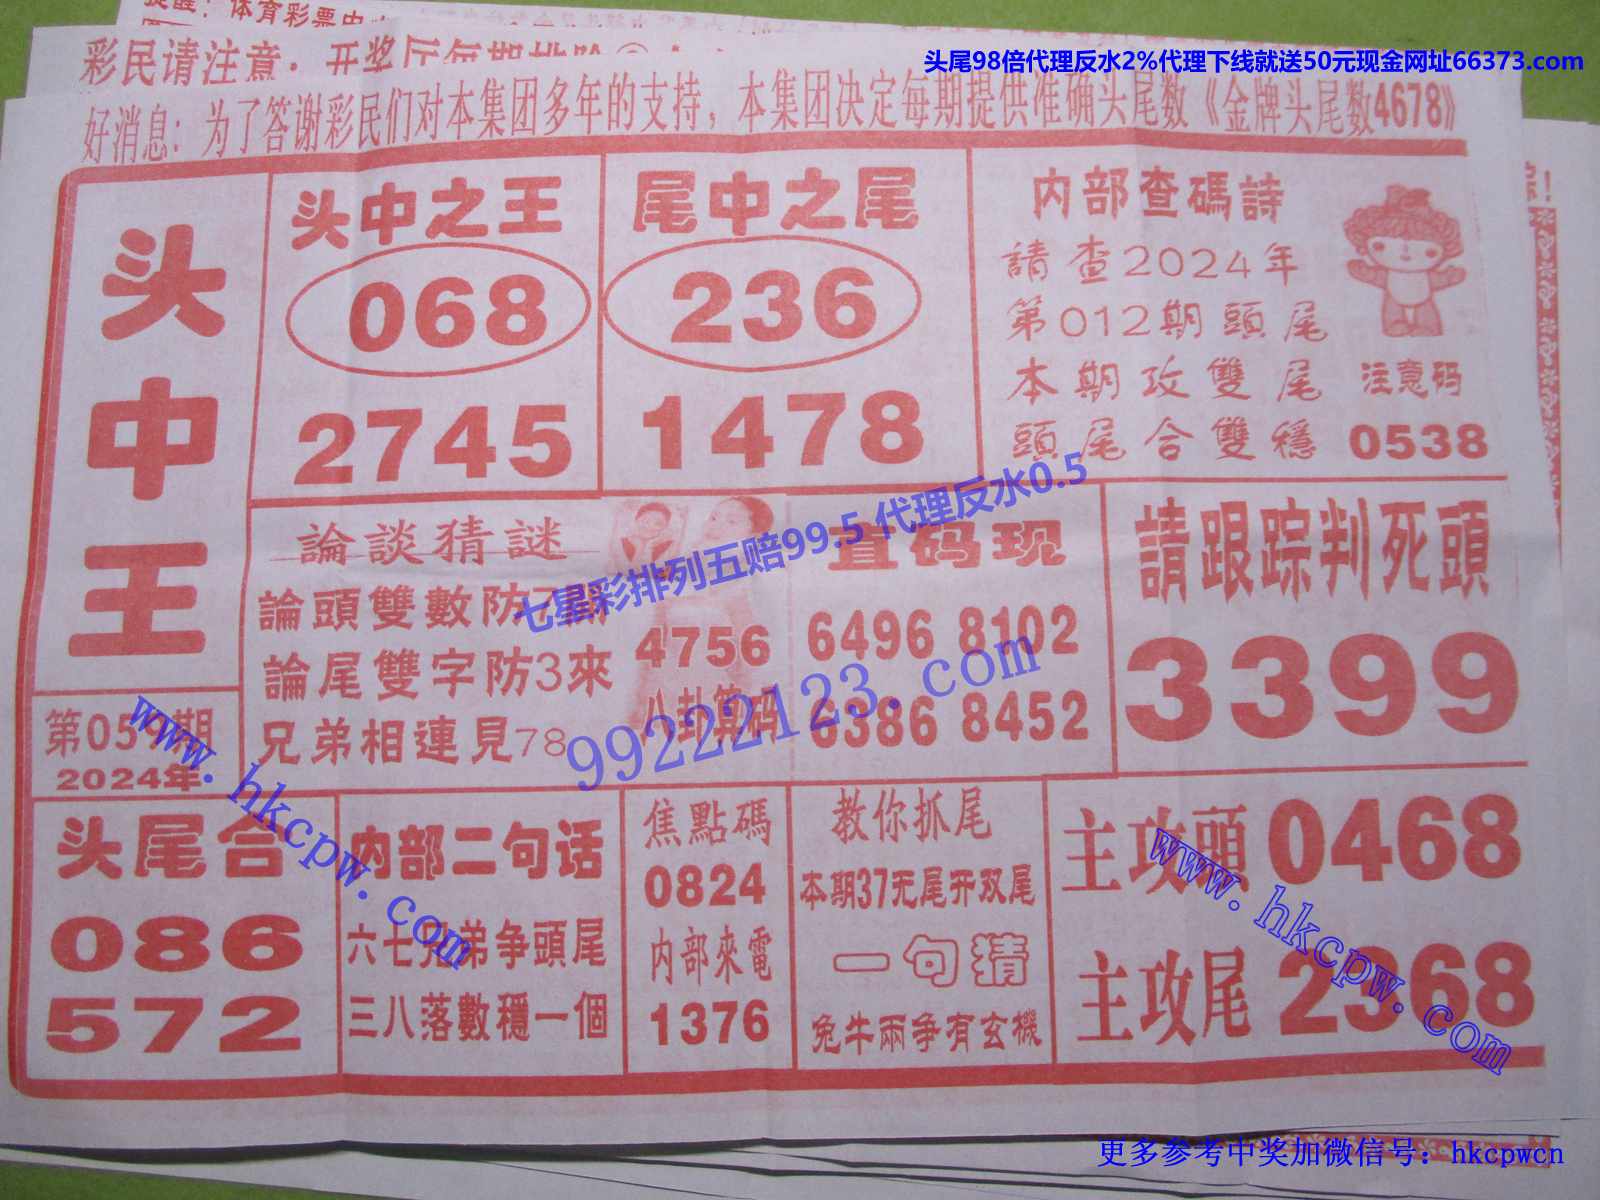 提醒：体育彩票中
彩民请注意：开奖厅每期排除
头尾98倍代理反水2%代理下线就送50元现金网址66373.com
好消息：为了答谢彩民们对本集团多年的支持，本集团决定每期提供准确头尾数《金牌头尾数4678》
头中王
第05 期
2024年
头中之王
068
2745
尾中之尾
236
1478
内部查碼詩
請查2024年
第012期頭尾
本期攻雙尾
頭尾合雙穩
注意码
0538
論談猜謎
論頭雙數防7
論尾雙字防3來
兄弟相連見78
4756
八卦算码
直码现
6496 8102
6386 8452
請跟踪判死頭
3399
七星彩排列五赔99.5 代理反水0.5
99222123.com
www.hkcpw.com
头尾合
086
572
内部二句话
六七兄弟争頭尾
三八落數穩一個
焦點碼
0824
内部來電
1376
教你抓尾
本期37无尾开双尾
一句猜
兔牛兩争有玄機
主攻頭0468
主攻尾2368
www.hkcpw.com
更多参考中奖加微信号：hkcpwcn